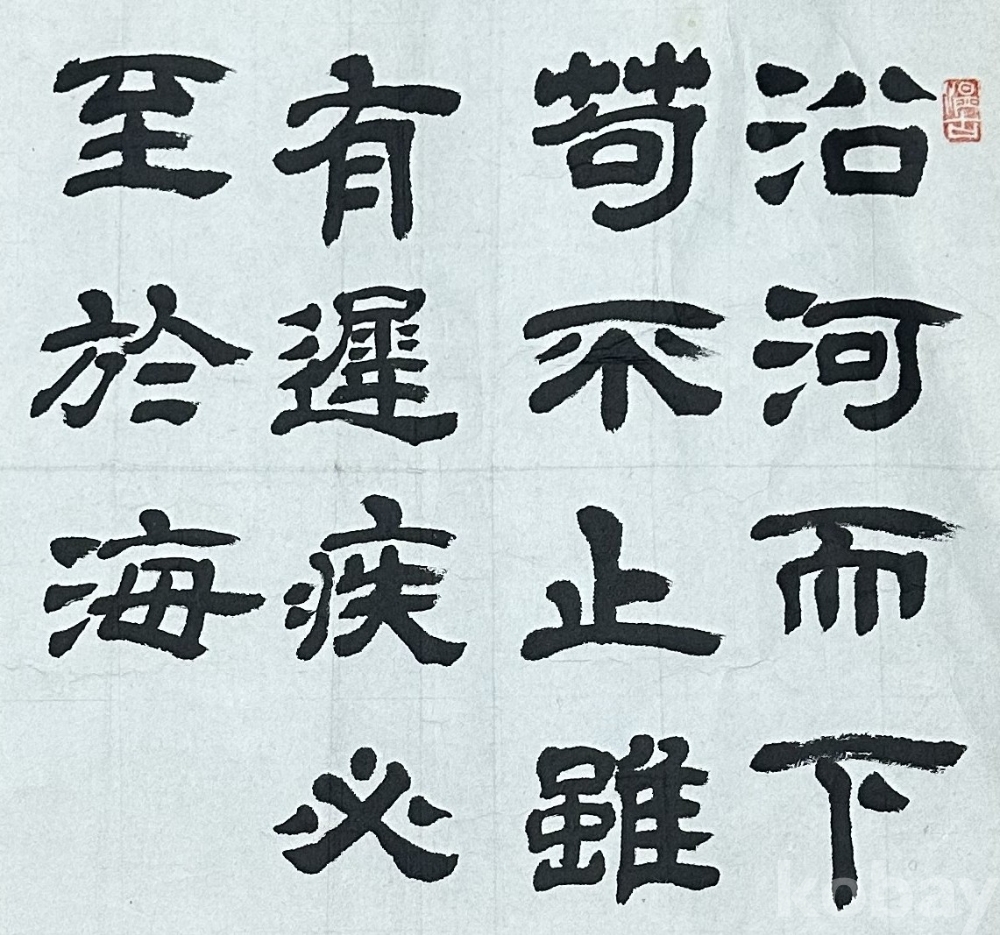 沿河而下
苟不止雖
有遲疾必
至於海
kobay